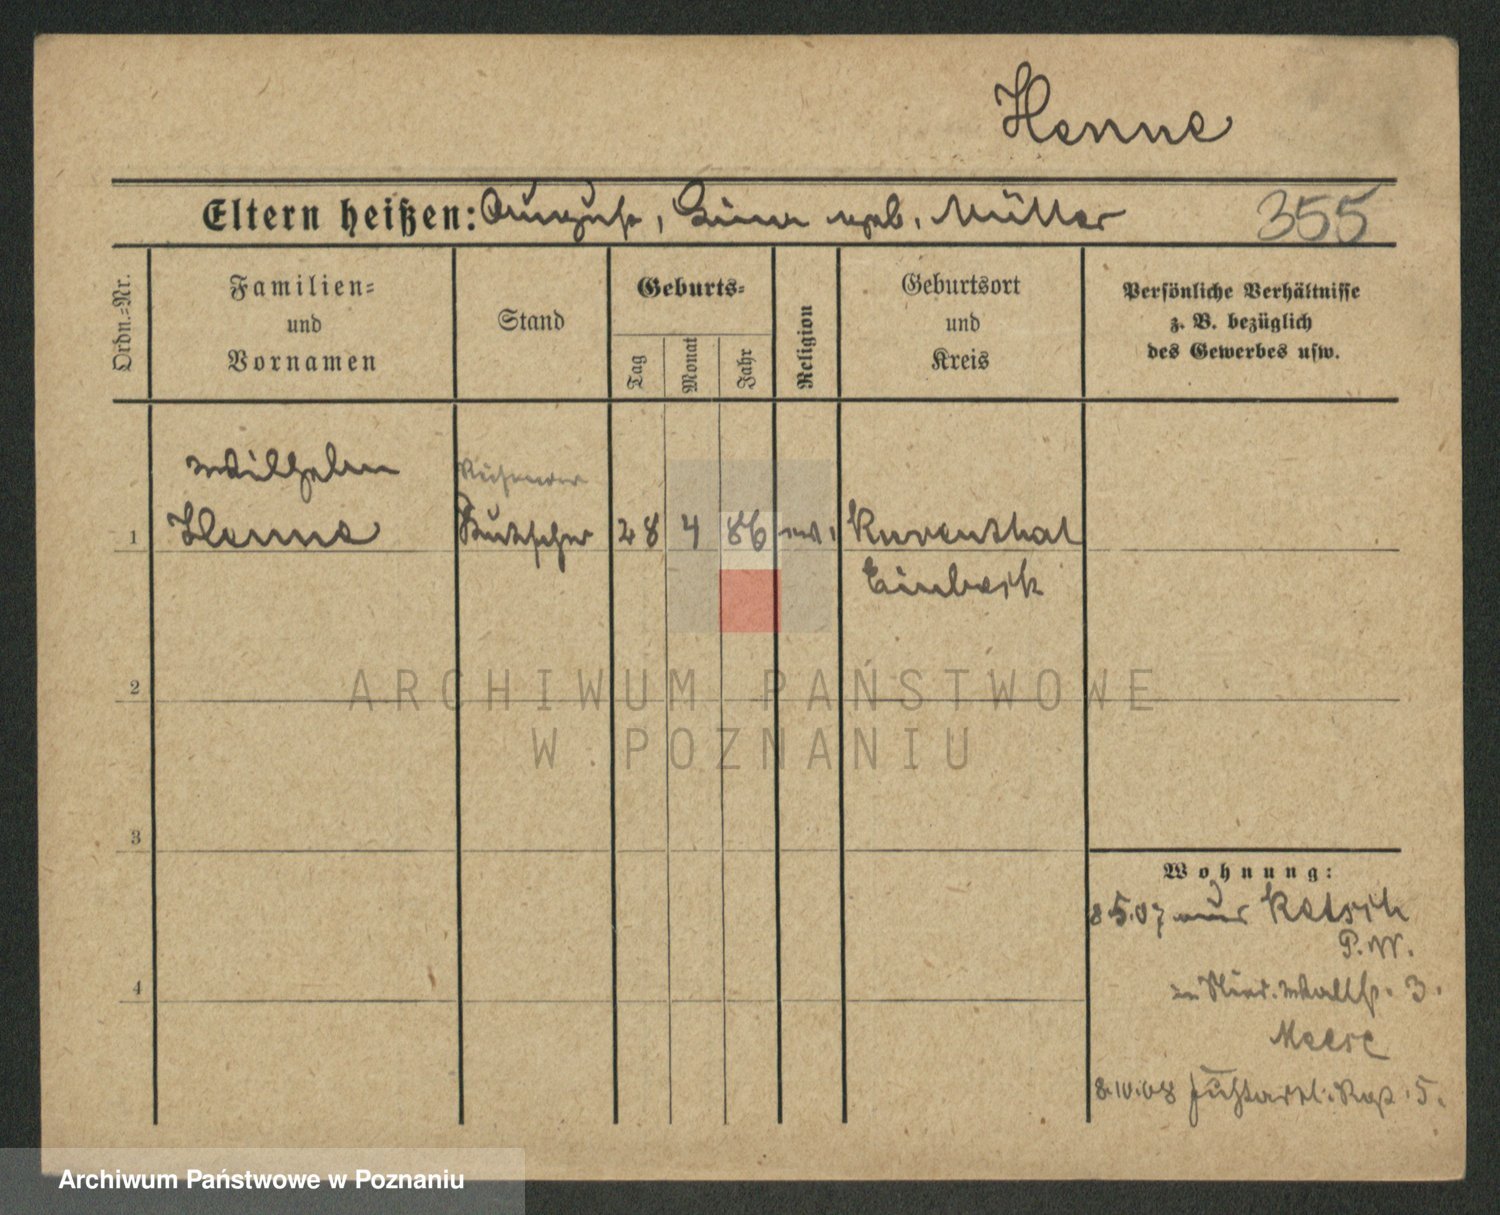 Henne
Eltern heißen: August, Line geb. Müller 355
Ordn.=Nr.
Familien=
und
Vornamen
Stand
Geburts=
Tag
Monat
Jahr
Religion
Geburtsort
und
Kreis
Persönliche Verhältnisse
z. B. bezüglich
des Gewerbes usw.
Wilhelm
1 Henne Kutscher 28 4 86 ev. Kuventhal
Einbeck
2
3
4
Wohnung:
8.5.07 aus
P.W.
3.
8.10.08 Fußartl. Rgt. 5.
ARCHIWUM PAŃSTWOWE
W POZNANIU
Archiwum Państwowe w Poznaniu